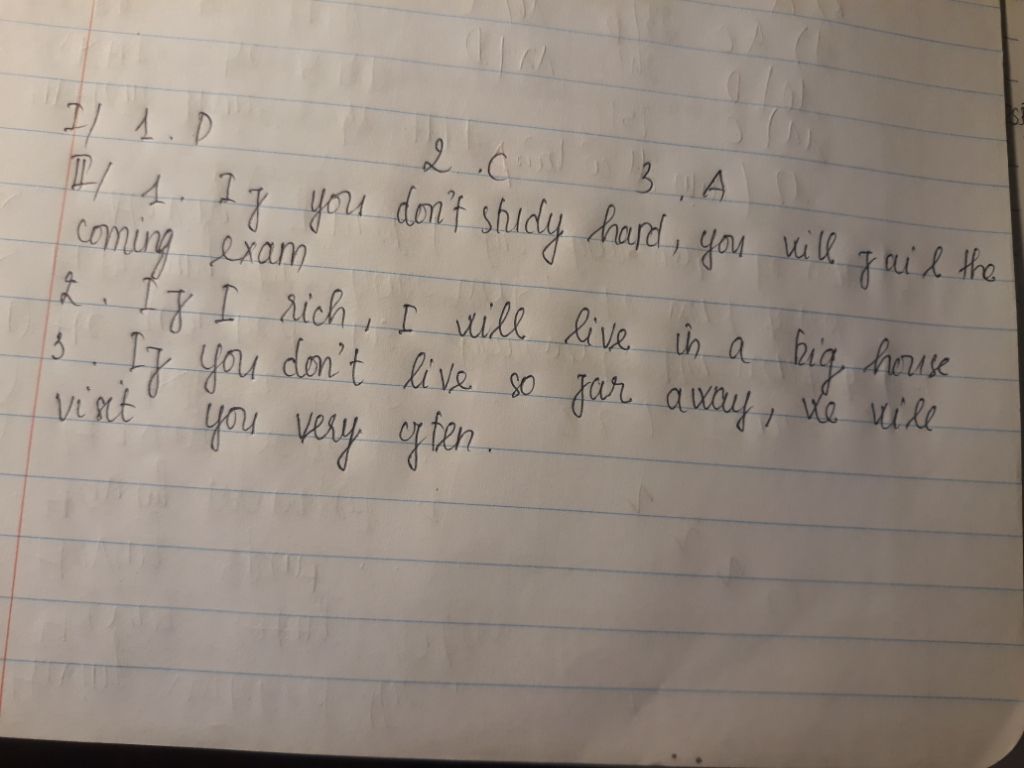 I/ 1. D 2. C 3. A
II/ 1. If you don't study hard, you will fail the
coming exam
2. If I rich, I will live in a big house
3. If you don't live so far away, we will
visit you very often.